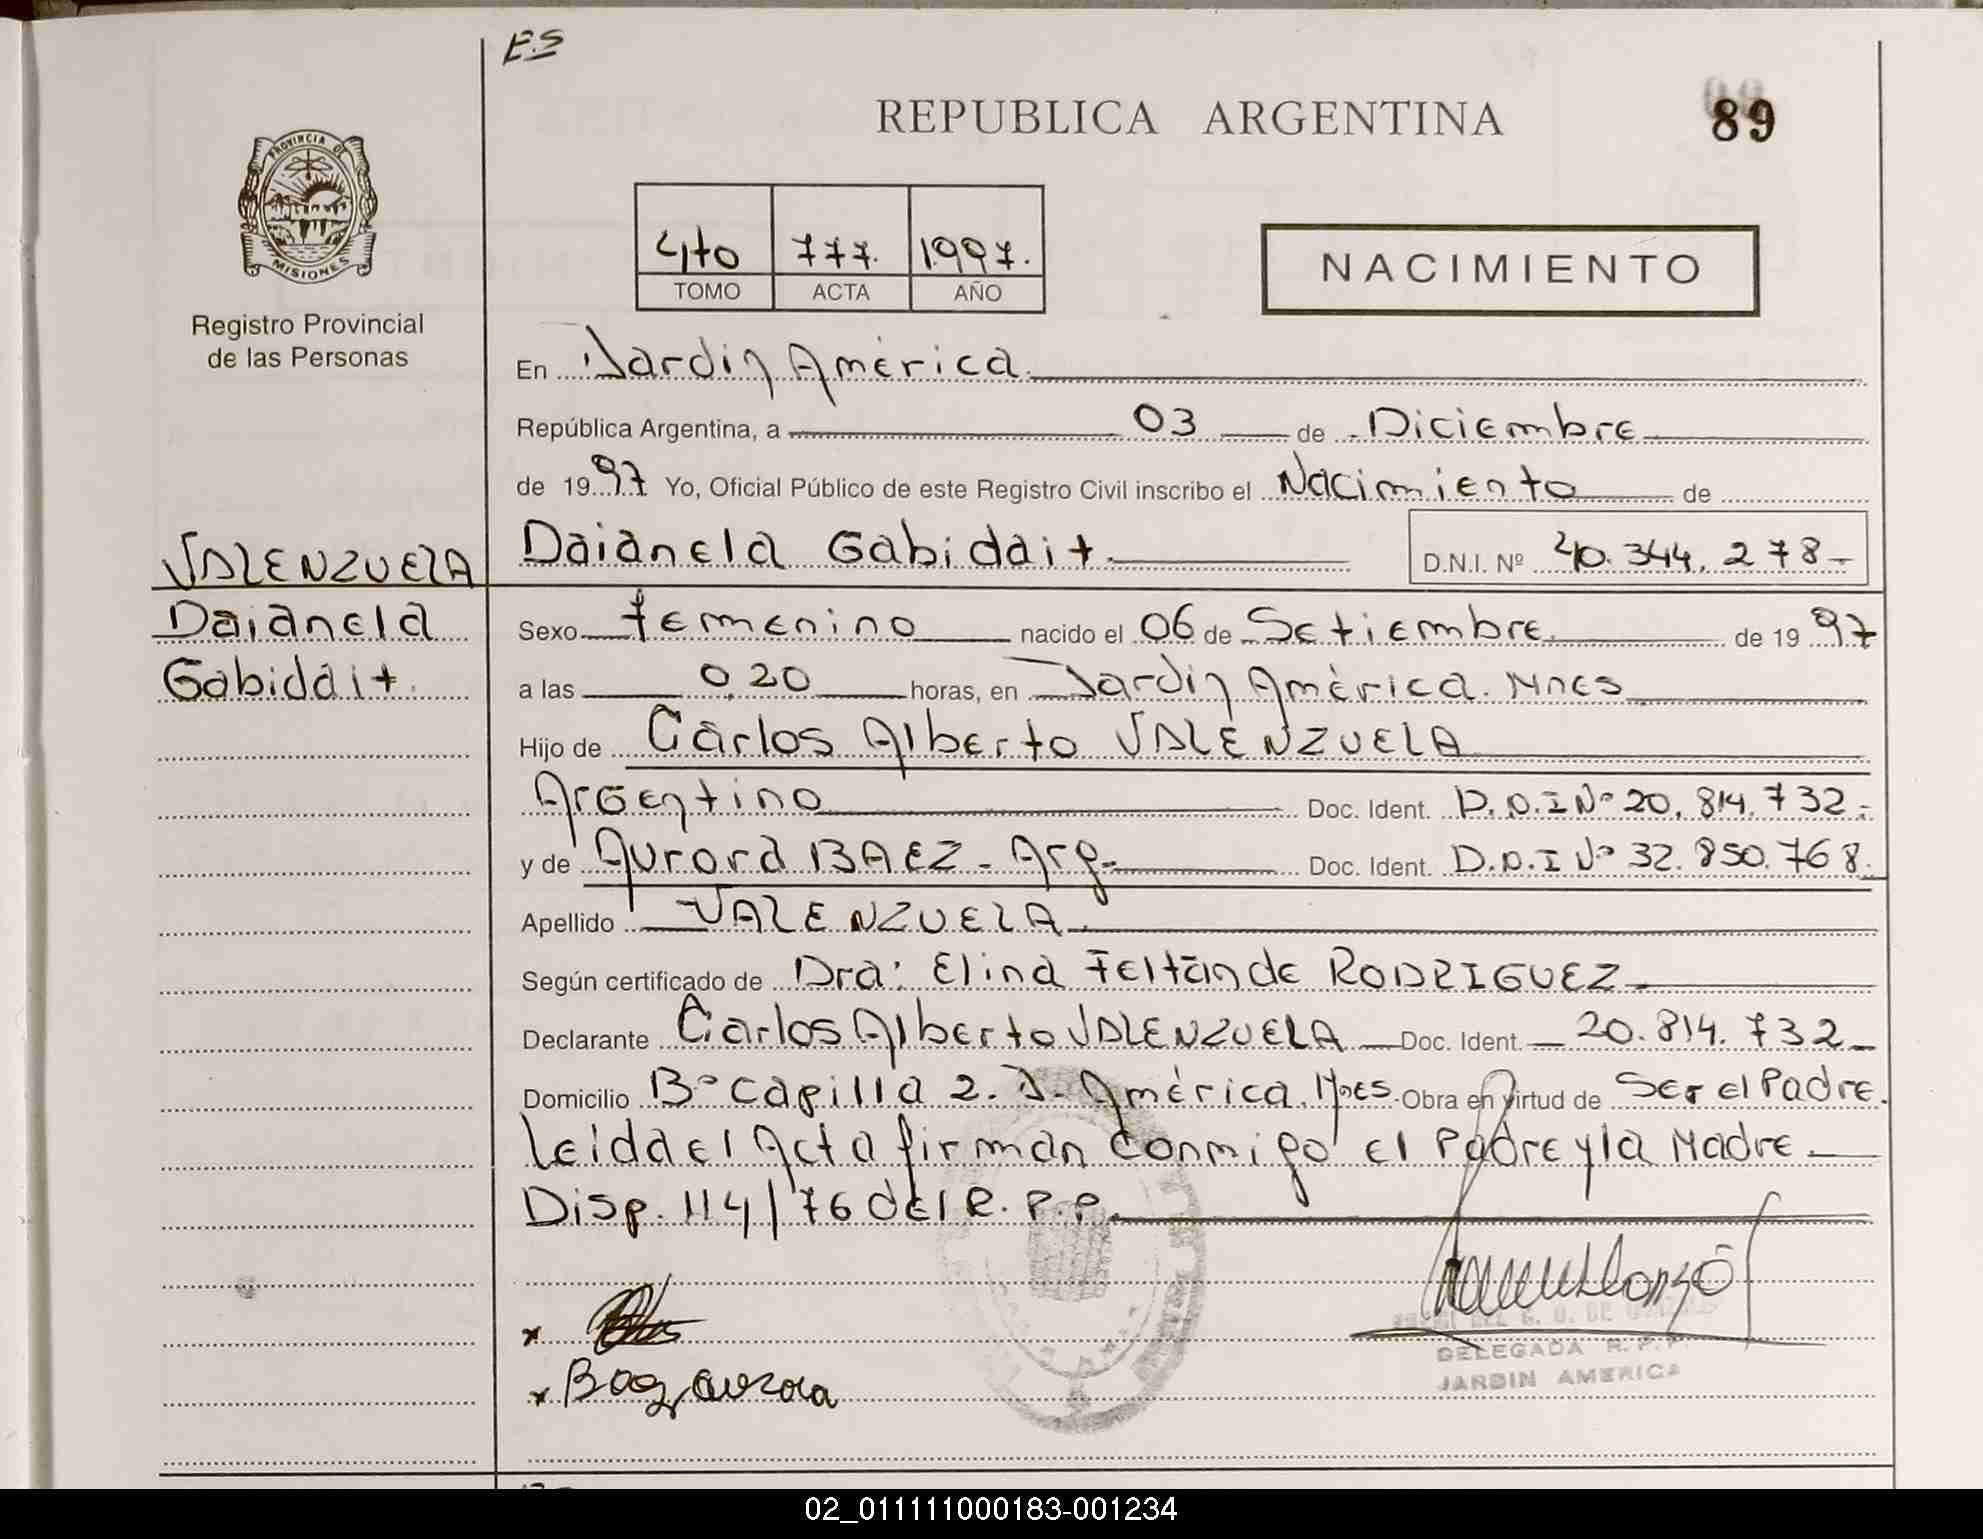 ES
REPUBLICA ARGENTINA
89
PROVINCIA DE
MISIONES
Registro Provincial
de las Personas
4to 777. 1997.
TOMO ACTA AÑO
NACIMIENTO
En Jardin América.
República Argentina, a 03 de Diciembre
de 1997 Yo, Oficial Público de este Registro Civil inscribo el Nacimiento de
VALENZUELA
Daianela
Gabidait.
Daianela Gabidait. D.N.I. Nº 40.344.278-
Sexo femenino nacido el 06 de Setiembre. de 1997
a las 0,20 horas, en Jardin América. Mnes
Hijo de Carlos Alberto VALENZUELA
Argentino Doc. Ident. D.N.I Nº 20.814.732.-
y de Aurora BAEZ - Arg.- Doc. Ident. D.N.I Nº 32.850.768.
Apellido VALENZUELA.
Según certificado de Dra: Elina RODRIGUEZ
Declarante Carlos Alberto VALENZUELA Doc. Ident. 20.814.732
Domicilio Bº Capilla 2. J. América. Mnes. Obra en virtud de Ser el Padre.
Leida el Acta firman conmigo el Padre y la Madre
Disp. 114/76 del R.P.P.
x
x Baez, aurora
DELEGADA R.P.P.
JARDIN AMERICA
02_011111000183-001234